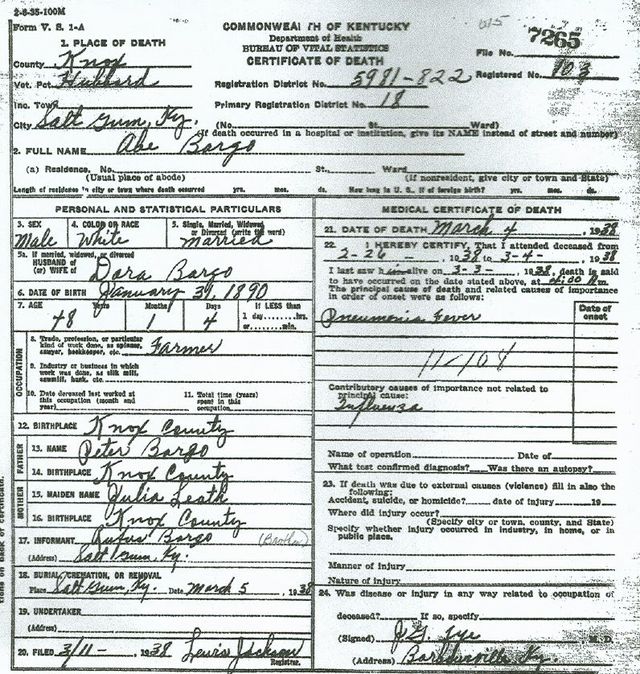 2-6-35-100M
Form V. S. 1-A
COMMONWEALTH OF KENTUCKY
Department of Health
BUREAU OF VITAL STATISTICS
CERTIFICATE OF DEATH
615
7265
File No.
Registered No. 103
1. PLACE OF DEATH
County Knox
Vot. Pct. Hubbard
Inc. Town
City Salt Gum, Ky.
Registration District No. 5981-822
Primary Registration District No. 18
(No. St. Ward)
(If death occurred in a hospital or institution, give its NAME instead of street and number)
2. FULL NAME Abe Bargo
(a) Residence. No. St., Ward
(Usual place of abode) (If nonresident, give city or town and State)
Length of residence in city or town where death occurred yrs. mos. ds. How long in U. S., if of foreign birth? yrs. mos. ds.
PERSONAL AND STATISTICAL PARTICULARS
3. SEX Male
4. COLOR OR RACE White
5. Single, Married, Widowed or Divorced (write the word) Married
5a. If married, widowed, or divorced
HUSBAND of
(or) WIFE of Dora Bargo
6. DATE OF BIRTH January 31, 1890
7. AGE Years Months Days If LESS than
48 1 4 1 day, hrs.
or min.
OCCUPATION
8. Trade, profession, or particular
kind of work done, as spinner,
sawyer, bookkeeper, etc. Farmer
9. Industry or business in which
work was done, as silk mill,
sawmill, bank, etc.
10. Date deceased last worked at
this occupation (month and
year)
11. Total time (years)
spent in this
occupation
12. BIRTHPLACE Knox County
FATHER
13. NAME Peter Bargo
14. BIRTHPLACE Knox County
MOTHER
15. MAIDEN NAME Julia Leath
16. BIRTHPLACE Knox County
17. INFORMANT Rufus Bargo (Brother)
(Address) Salt Gum, Ky.
18. BURIAL, CREMATION, OR REMOVAL
Place Salt Gum, Ky. Date March 5, 1938
19. UNDERTAKER
(Address)
20. FILED 3/11-, 1938 Lewis Jackson
Registrar.
MEDICAL CERTIFICATE OF DEATH
21. DATE OF DEATH March 4, 1938
22. I HEREBY CERTIFY, That I attended deceased from
2-26-, 1938 to 3-4-, 1938
I last saw h alive on 3-3-, 1938, death is said
to have occurred on the date stated above, at m.
The principal cause of death and related causes of importance
in order of onset were as follows:
Date of
onset
Pneumonia Fever
11-108
Contributory causes of importance not related to
principal cause:
Influenza
Name of operation Date of
What test confirmed diagnosis? Was there an autopsy?
23. If death was due to external causes (violence) fill in also the
following:
Accident, suicide, or homicide? date of injury 19
Where did injury occur?
(Specify city or town, county, and State)
Specify whether injury occurred in industry, in home, or in
public place.
Manner of injury
Nature of injury
24. Was disease or injury in any way related to occupation of
deceased? If so, specify
(Signed) J. G. Tye M. D.
(Address) Barbourville, Ky.
tions on back of certificate.